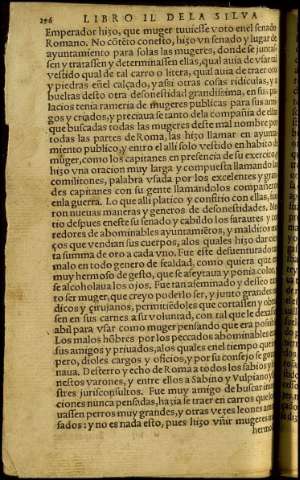 256 LIBRO II. DE LA SILVA
Emperador hizo, que muger tuuiesse voto en el senado
Romano. No cōtēto conesto, hizo vn senado y lugar de
ayuntamiento para solas las mugeres, donde se juntas
sen y tratassen y determinassen ellas, qual auia de vsar tal
vestido qual de tal carro o litera, qual auia de traer oro
y piedras enel calçado, y assi otras cosas ridiculas, y a
bueltas desto otra desonestidad grandissima, en sus pa
lacios tenia rameria de mugeres publicas para sus ami
gos y criados, y preciaua se tanto dela compañia de ellas
que buscadas todas las mugeres deste mal nombre por
todas las partes de Roma, las hizo llamar en ayunta
miento publico, y entro el alli solo vestido en habito de
muger, como los capitanes en presencia de su exercito
hizo vna oracion muy larga y compuesta llamandolas
comilitones, palabra vsada por los excelentes y gran
des capitanes con su gente llamandolos compañeros
en la guerra. Lo que alli platico y consistio con ellas, fue
ron nueuas maneras y generos de desonestidades.
tio despues eneste su senado y cabildo los sarautes y cor
redores de abominables ayuntamiētos, y malditos
ços que vendian sus cuerpos, alos quales hizo dar
ta summa de oro a cada vno. Fue este desuenturado
malo en todo genero de fealdad, como quiera que era
muy hermoso de gesto, que se afeytaua y ponia color,
se alcoholaua los ojos. Fue tan afeminado y desseoso
to ser muger, que creyo poderlo ser, y junto grandes
dicos y çirujanos, permitiēdoles que cortassen y obras
sen en sus carnes a su voluntad, con tal que le dexassen
abil para vsar como muger pensando que era possible
Los malos hōbres por los peccados abominables
sus amigos y priuados, alos quales enel tiempo que
pero, dioles cargos y oficios, y por su consejo se gouer
naua. Desterro y echo de Roma a todos los sabios y ho
nestos varones, y entre ellos a Sabino y Vulpiano, y
stres jurisconsultos. Fue muy amigo de buscar
ciones nunca pensadas, hazia se traer en carros que lle
uassen perros muy grandes, y otras vezes leones aman
sados: y no es nada esto, pues hizo vñir mugeres
hermo